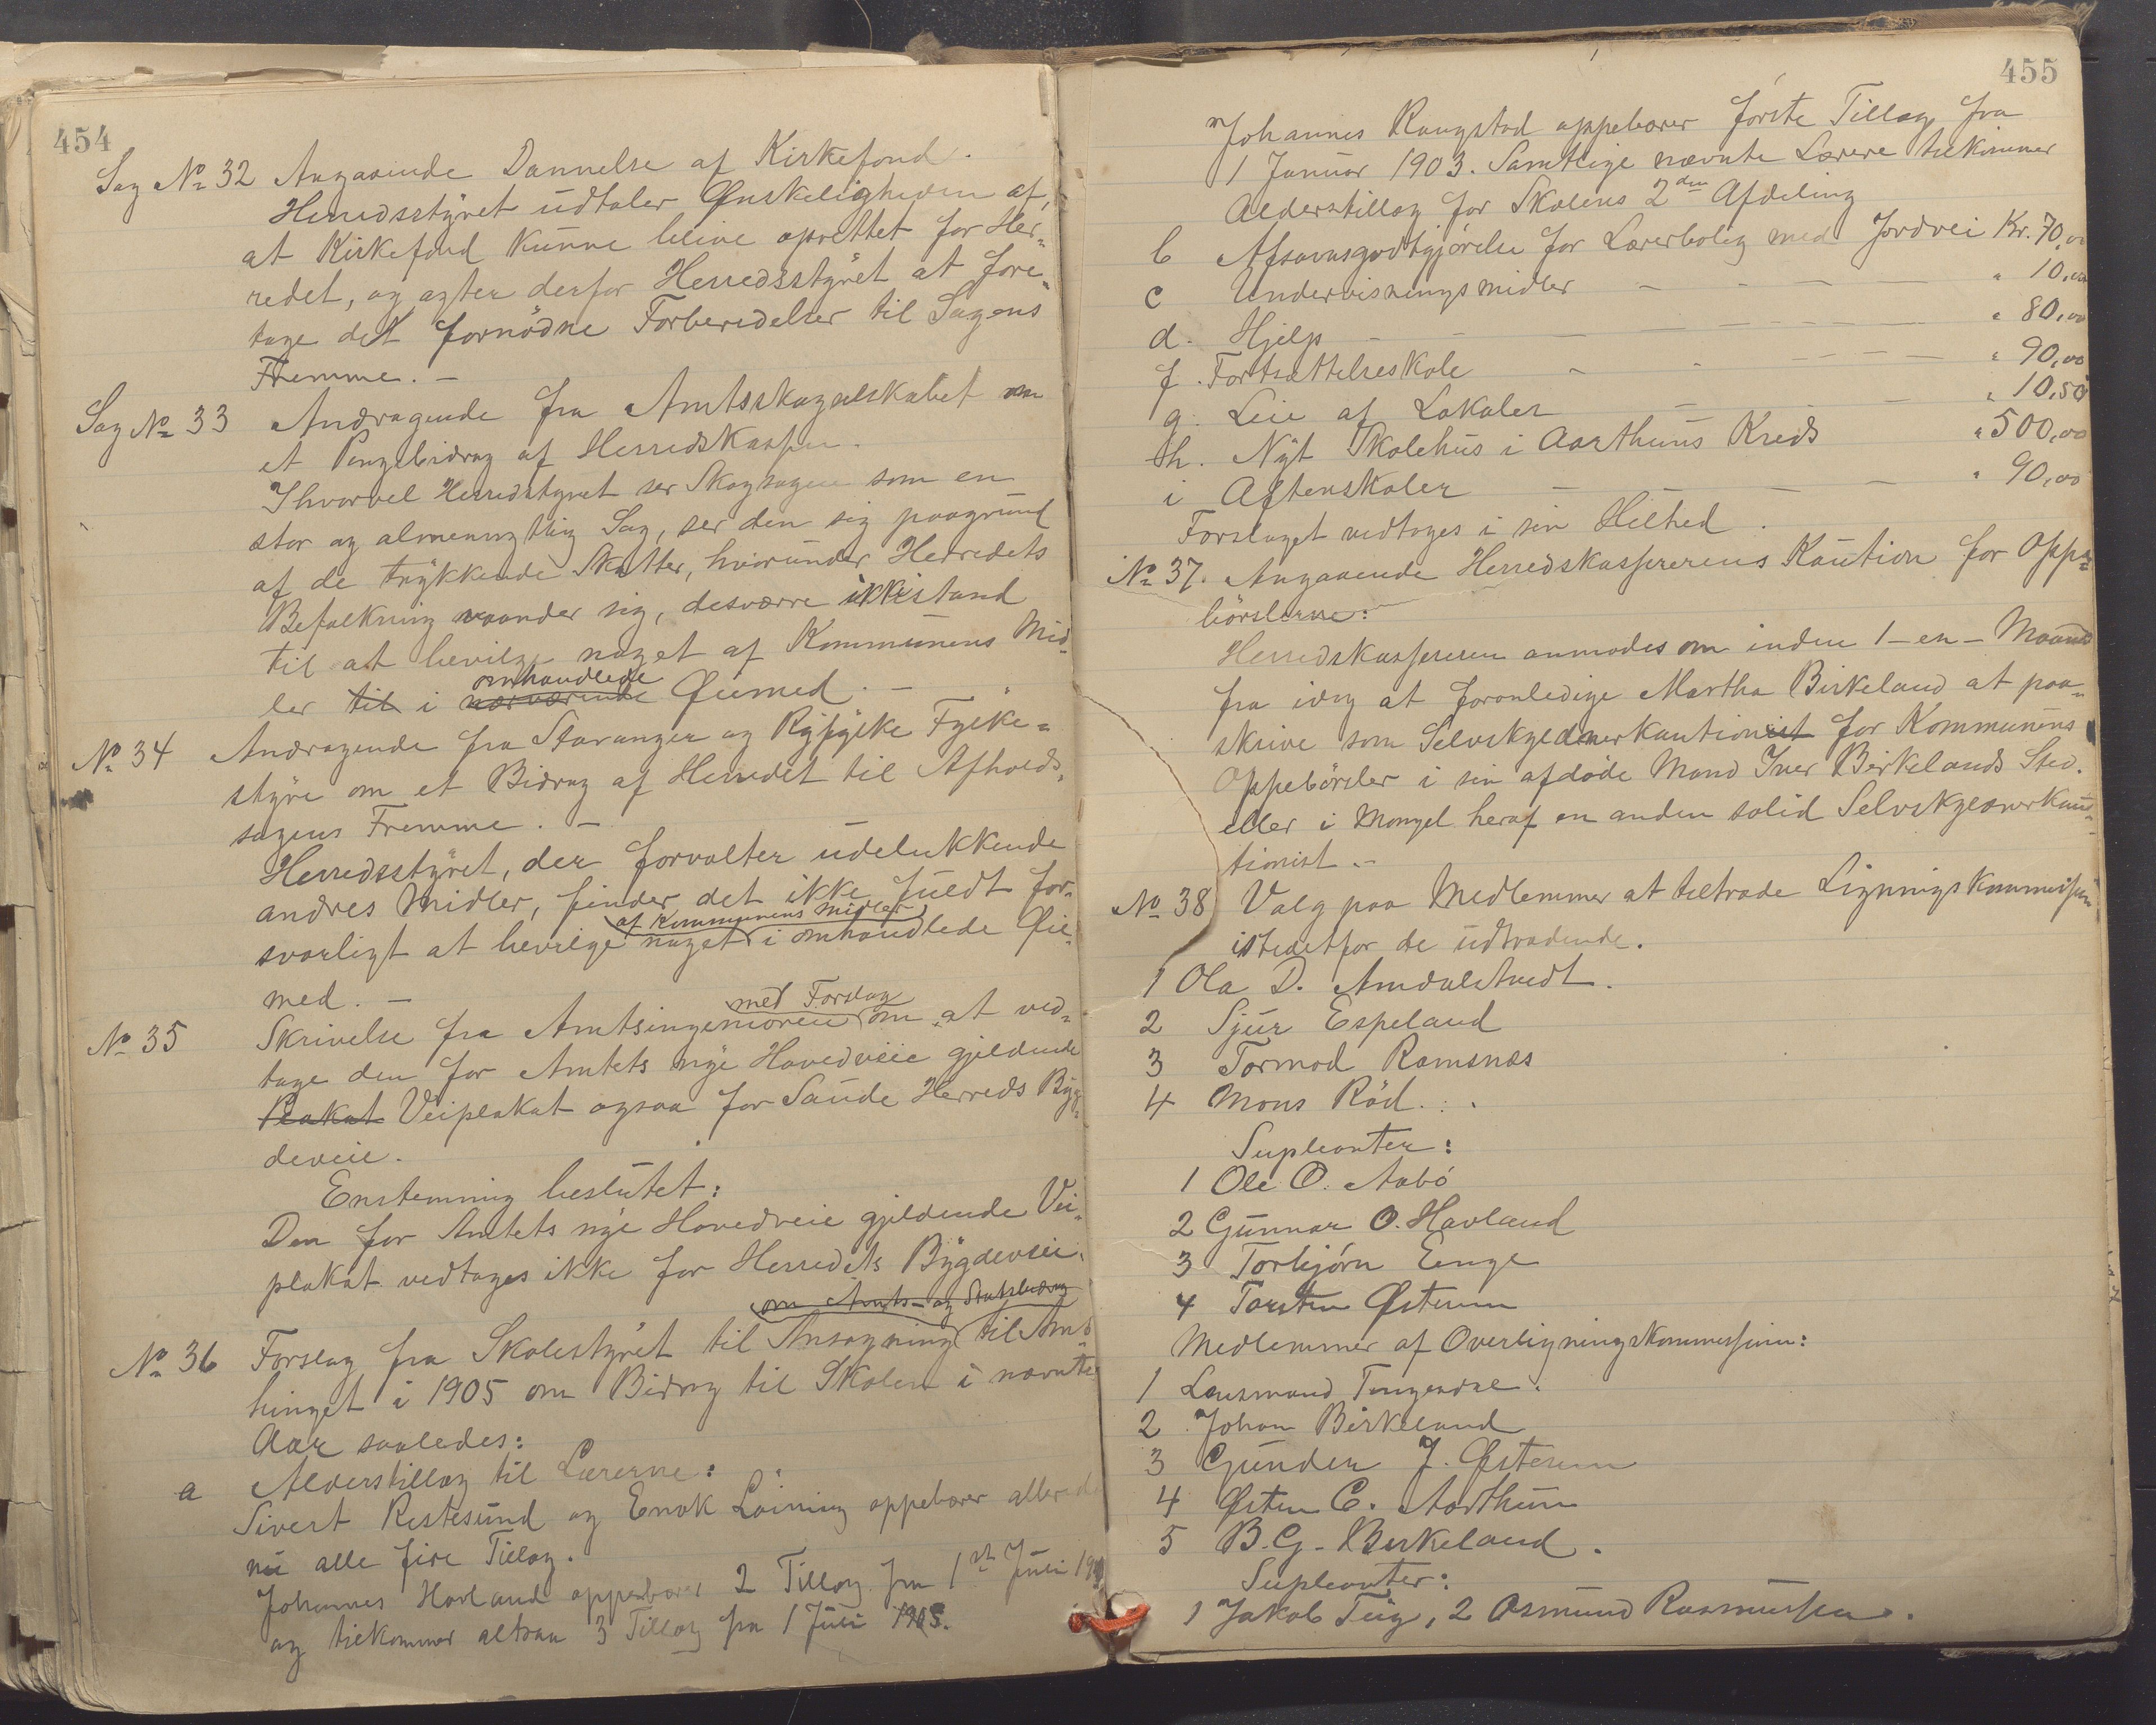 454
Sag No 32 Angaaende Dannelse af Kirkefond.
Herredsstyret udtaler Ønskeligheden af,
at Kirkefond kunne blive oprettet for Her-
redet, og agter derfor Herredsstyret at fore-
tage det fornødne Forberedelser til Sagens
Fremme. —
Sag No 33 Andragende fra Amtsskogselskabet om
et Pengebidrag af Herredskassen.
Ihvorvel Herredstyret ser Skogsagen som en
stor og almennyttig Sag, ser den sig paagrund
af de trykkende Skatter, hvorunder Herredets
Befolkning vaander sig, desværre ikke istand
til at bevilge noget af Kommunens Mid-
omhandlede
ler til i nærværende Øiemed. —
No 34 Andragende fra Stavanger og Ryfylke Fylke-
styre om et Bidrag af Herredet til Afholds-
sagens Fremme. —
Herredsstyret, der forvalter udelukkende
andres Midler, finder det ikke fuldt for-
af Kommunens Midler
svarligt at bevilge noget i omhandlede Øie-
med. —
med Forslag
No 35 Skrivelse fra Amtsingeniøren om at ved-
tage den for Amtets nye Hovedveie gjeldende
Plakat Veiplakat ogsaa for Saude Herreds Byg-
deveie.
Enstemmig beslutet:
Den for Amtets nye Hovedveie gjeldende Vei-
plakat vedtages ikke for Herredets Bygdeveie.
om Amts- og Statsbidrag
No 36 Forslag fra Skolestyret til Ansøgning til Amts
thinget i 1905 om Bidrag til Skolen i nævnte
Aar saaledes:
a Alderstillæg til Lærerne:
Sivert Restesund og Enok Løining oppebærer allerede
nu alle fire Tillæg.
Johannes Havland oppebærer 2 Tillæg fra 1st Juli
og tilkommer altsaa 3 Tillæg fra 1 Juli 1905.
455
Johannes Rangstad oppebærer første Tillæg fra
1 Januar 1903. Samtlige nævnte Lærere tilkommer
Alderstillæg for Skolens 2den Afdeling
b Afsavnsgodtgjørelse for Lærerbolig med Jordvei Kr. 70,00
c Undervisningsmidler — — — — " 10,00
d. Hjelp — — — — — " 80,00
f. Fortsættelseskole — — — — " 90,00
g. Leie af Lokaler — — — " 10,50
h. Nyt Skolehus i Aarthuns Kreds " 500,00
i Aftenskoler — — — — " 90,00
Forslaget vedtages i sin Helhed.
No 37. Angaaende Herredskassererens Kaution for Oppe-
børslerne:
Herredskassereren anmodes om inden 1-en- Maaned
fra idag at foranledige Martha Birkeland at paa-
skrive som Selvskyldnerkautionist for Kommunens
Oppebørsler i sin afdøde Mand Iver Birkelands Sted.
eller i Mangel heraf en anden solid Selvskyldnerkau-
tionist. —
No 38 Valg paa Medlemmer at tiltræde Ligningskommissjon
istedetfor de udtrædende.
1 Ola D. Amdalstvedt.
2 Sjur Espeland
3 Tormod Ramsnes
4 Mons Rød.
Supleanter:
1 Ole O. Aabø
2 Gunnar O. Havland
3 Torbjørn Enge
4 Torsten Østerun
Medlemmer af Overligningskommissjon:
1 Lensmand Tengesdal.
2 Johan Birkeland
3 Gunder J. Østerun
4 Østen C. Aarthun
5 B. G. Birkeland.
Supleanter:
1 Jakob Teig, 2 Osmund Rasmussen.